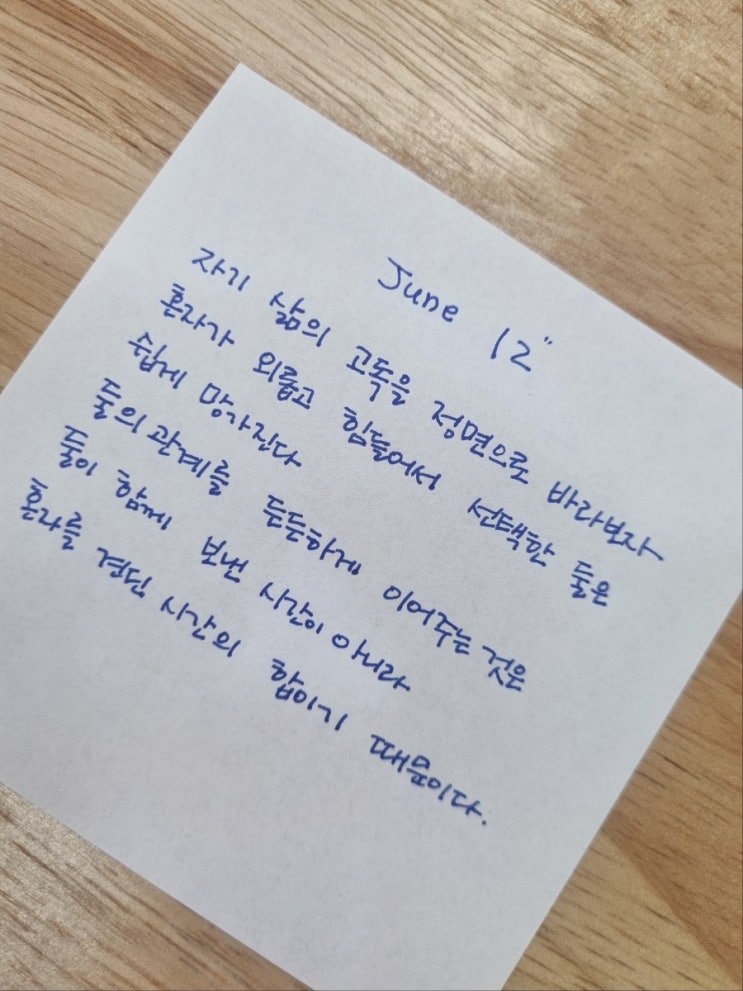 June 12"
자기 삶의 고독을 정면으로 바라보자
혼자가 외롭고 힘들어서 선택한 둘은
쉽게 망가진다
둘의 관계를 든든하게 이어주는 것은
둘이 함께 보낸 시간이 아니라
혼자를 견딘 시간의 합이기 때문이다.